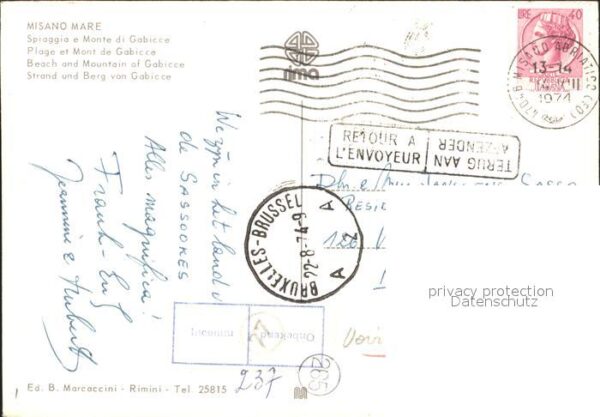 MISANO MARE
Spiaggia e Monte di Gabicce
Plage et Mont de Gabicce
Beach and Mountain of Gabicce
Strand und Berg van Gabicce
rima
LIRE 40
47046 MISANO ADRIATICO (FO)
13-14
1974
RETOUR A
L'ENVOYEUR
TERUG AAN
AFZENDER
We zijn in het land v
de SASSOORES
Alles magnifica!
Frank - Eric
Jeannine & Hubert
Dhr e
RESIE
126
BRUXELLES-BRUSSEL
A
22-8-74-9
A 2
Onbekend
Inconnu
27
237
Voir
285
privacy protection
Datenschutz
Ed. B. Marcaccini - Rimini - Tel. 25815